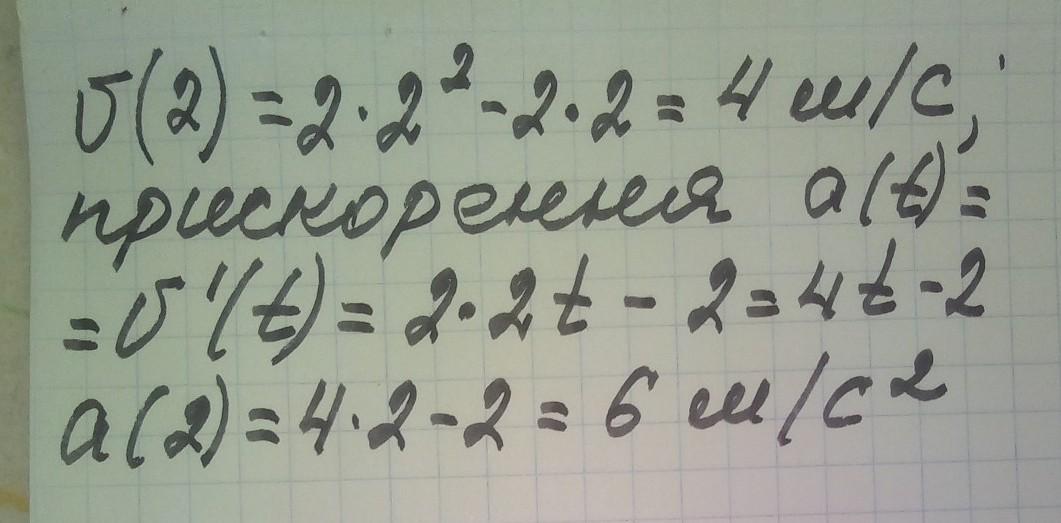 v(2) = 2·2² - 2·2 = 4 м/с;
прискорення a(t) =
= v'(t) = 2·2t - 2 = 4t - 2
a(2) = 4·2 - 2 = 6 м/с²